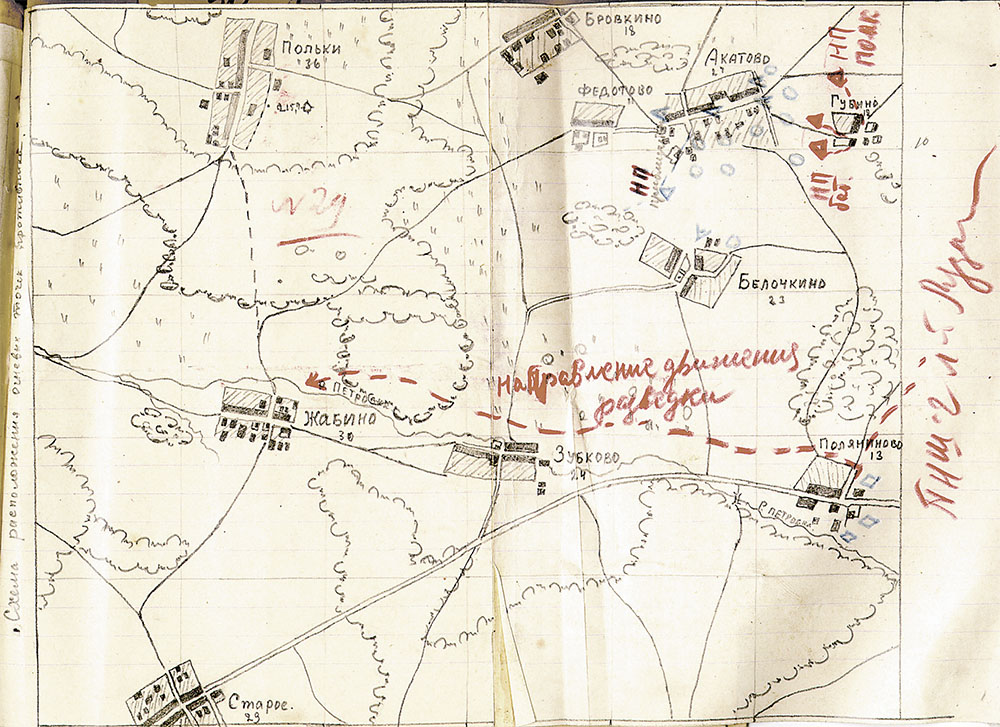 Польки
36
Бровкино
18
Акатово
27
Федотово
НП
полк
Губино
10
НП
бат
НП
№29
Белочкино
23
Направление движения
разведки
р. Петровка
Жабино
30
Зубково
24
Поляниново
13
р. Петровка
Старое.
29
Схема расположения огневых точек противника.